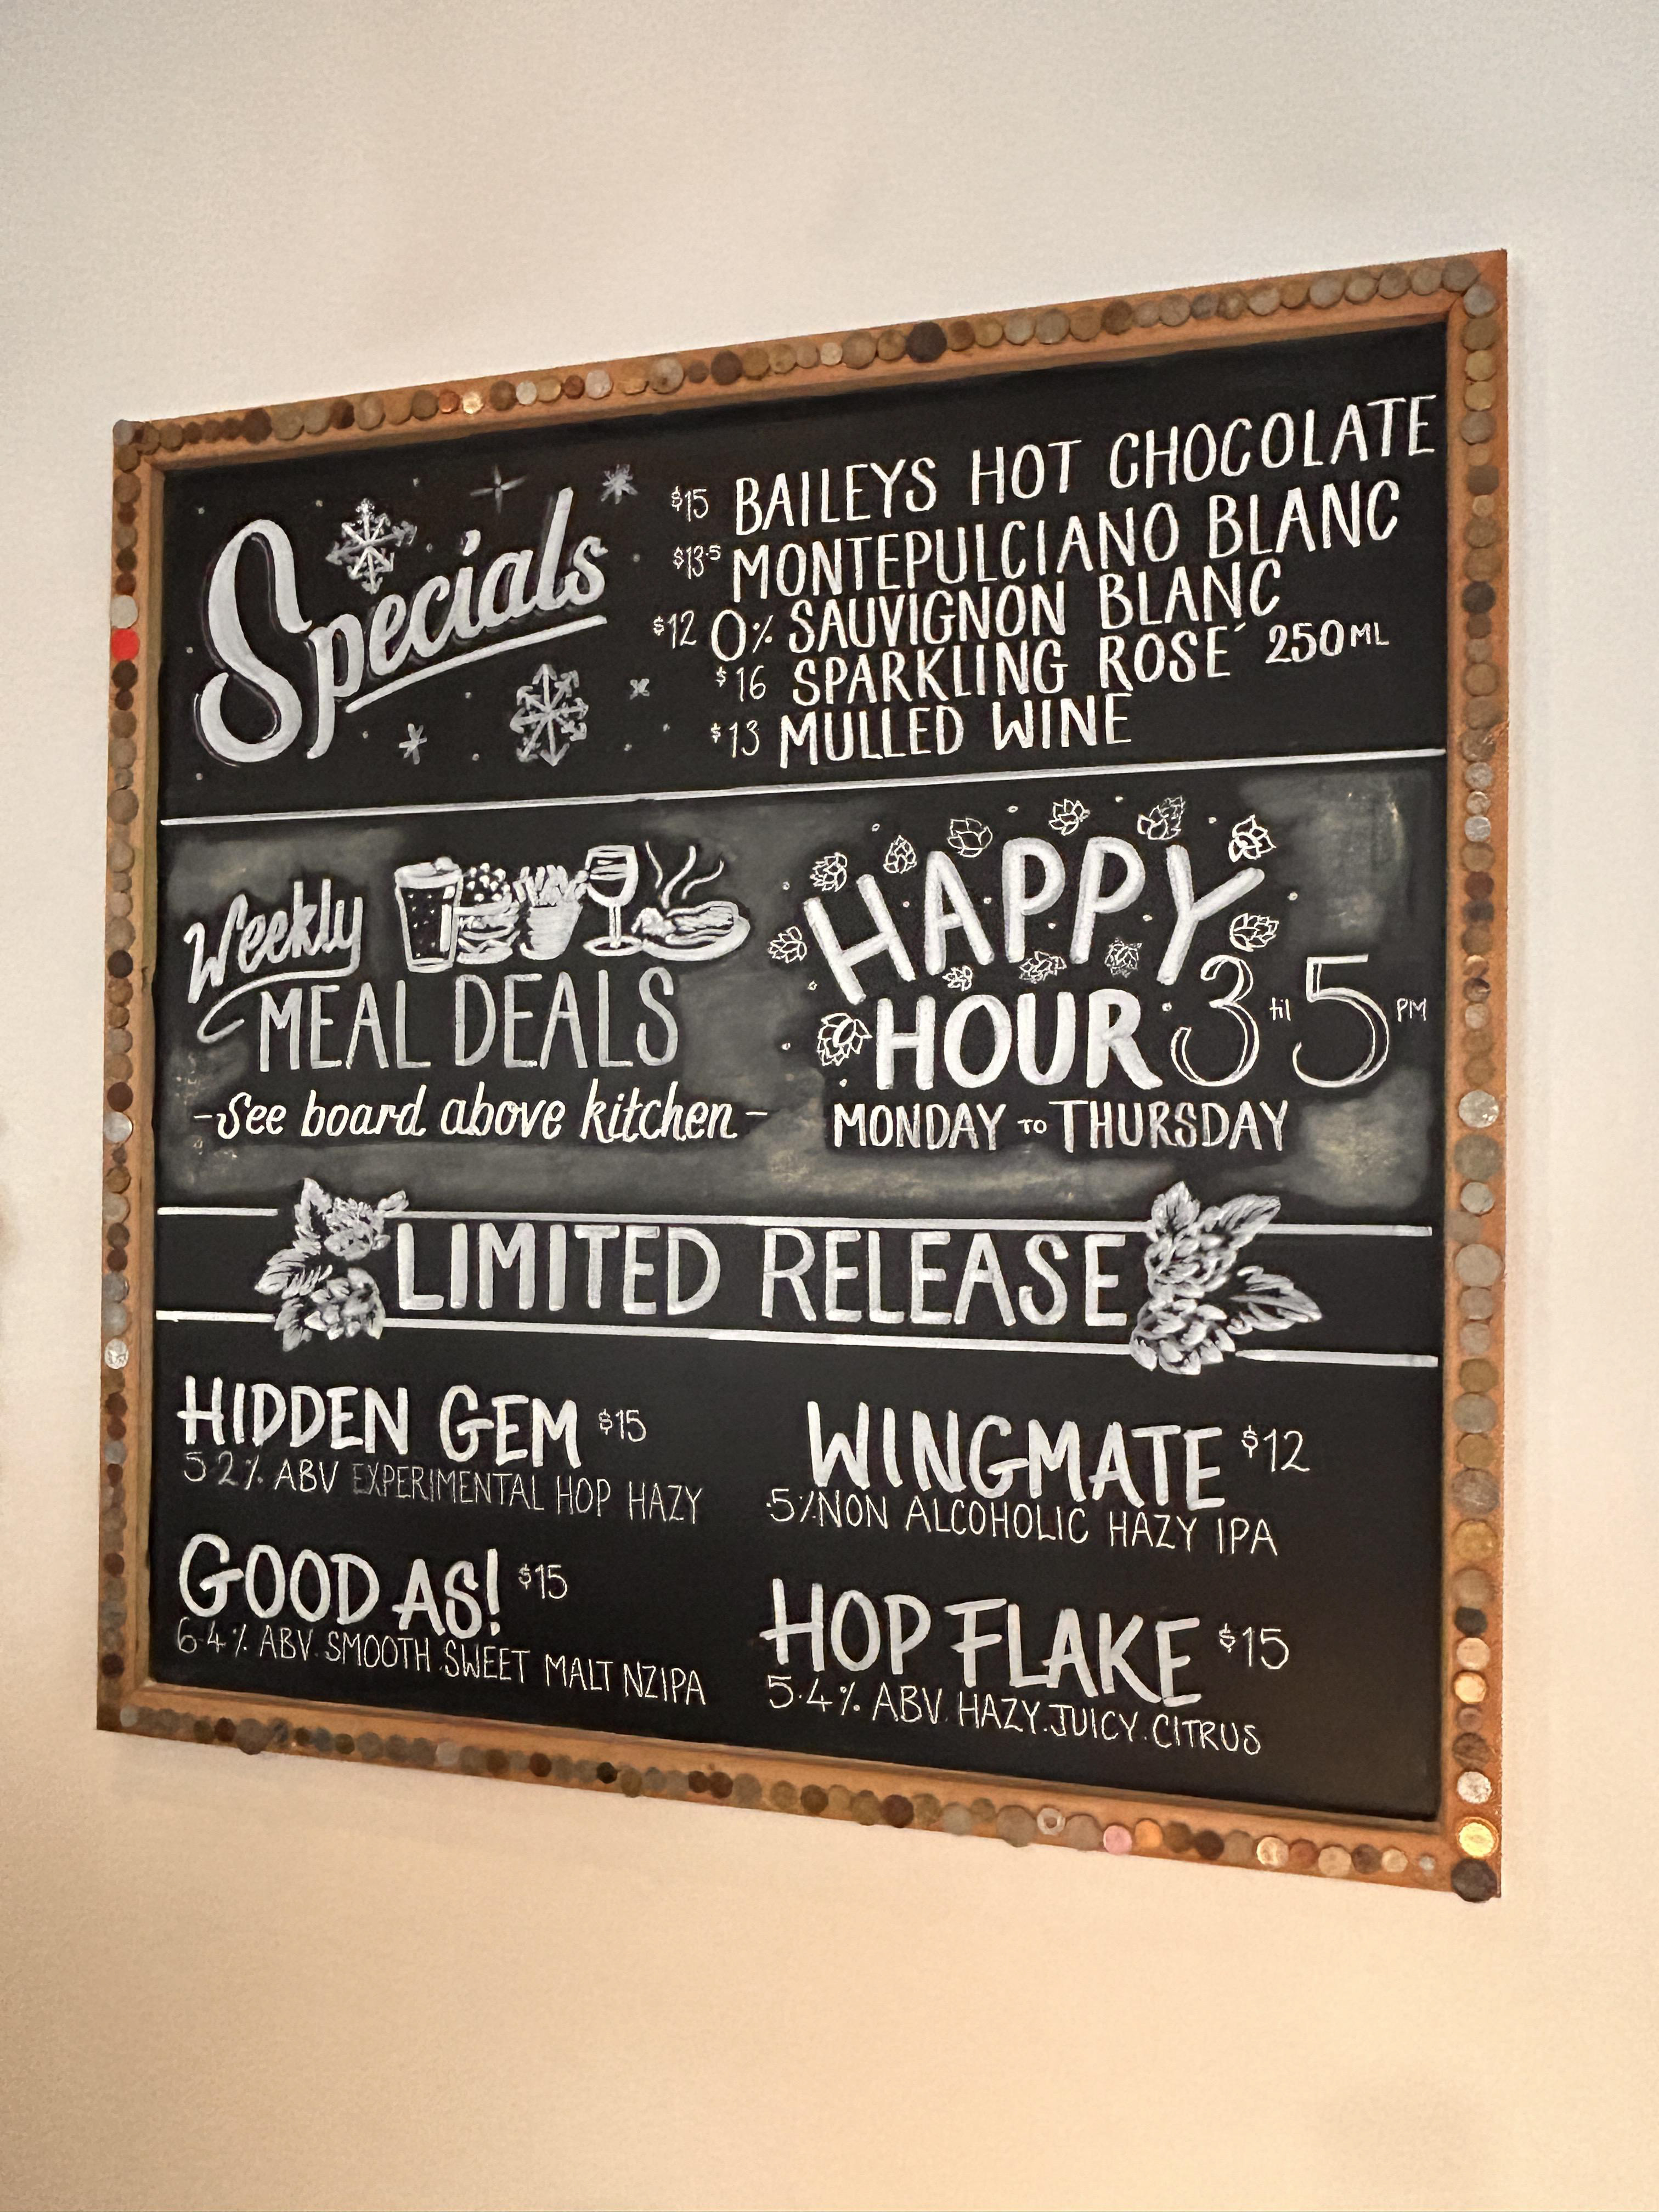 Specials
$15 BAILEYS HOT CHOCOLATE
$13.5 MONTEPULCIANO BLANC
$12 0% SAUVIGNON BLANC
$16 SPARKLING ROSÉ 250ML
$13 MULLED WINE
Weekly
MEAL DEALS
-See board above kitchen-
HAPPY
HOUR 3 til 5 PM
MONDAY TO THURSDAY
LIMITED RELEASE
HIDDEN GEM $15
5.2% ABV EXPERIMENTAL HOP HAZY
GOOD AS! $15
6.4% ABV. SMOOTH. SWEET MALT NZIPA
WINGMATE $12
.5% NON ALCOHOLIC HAZY IPA
HOP FLAKE $15
5.4% ABV. HAZY. JUICY. CITRUS